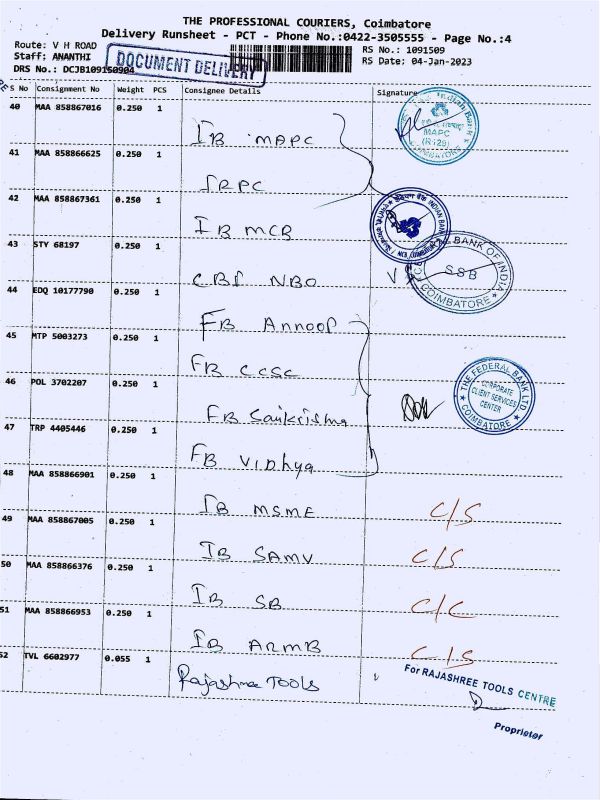 THE PROFESSIONAL COURIERS, Coimbatore
Delivery Runsheet - PCT - Phone No.:0422-3505555 - Page No.:4
Route: V H ROAD
RS No.: 1091509
Staff: ANANTHI
RS Date: 04-Jan-2023
DRS No.: DCJB109150904
DOCUMENT DELIVERY
S No Consignment No Weight PCS Consignee Details Signature
40 MAA 858867016 0.250 1 IB MAPC
MAPC
COIMBATORE
41 MAA 858866625 0.250 1 IRPC
42 MAA 858867361 0.250 1 IB MCB
INDIAN BANK
43 STY 68197 0.250 1 CBI NBO
BANK OF INDIA
SSB
COIMBATORE
44 EDQ 10177790 0.250 1 FB Annoop
45 MTP 5003273 0.250 1 FB CCSC
THE FEDERAL BANK LTD
CORPORATE
CLIENT SERVICES
CENTER
COIMBATORE
46 POL 3702207 0.250 1 FB Saikrishna
47 TRP 4405446 0.250 1 FB Vidhya
48 MAA 858866901 0.250 1 IB MSME C/S
49 MAA 858867005 0.250 1 IB SAMV C/S
50 MAA 858866376 0.250 1 IB SB C/C
51 MAA 858866953 0.250 1 IB ARMB C/S
52 TVL 6602977 0.055 1 Rajashree TOOLS
For RAJASHREE TOOLS CENTRE
Proprietor